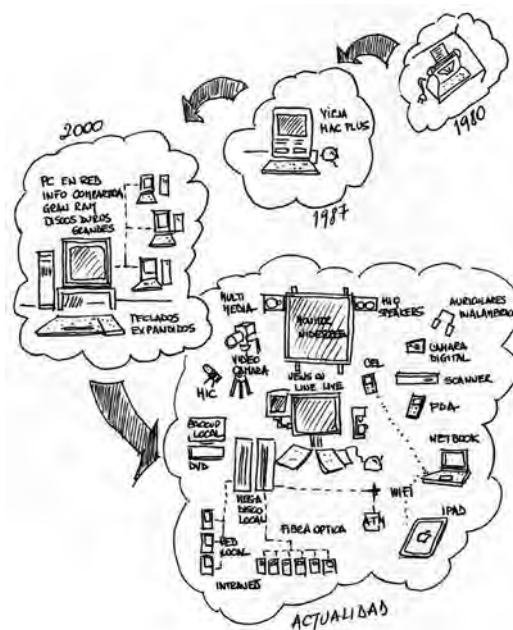 1980
VIEJA
MAC PLUS
1987
2000
PC EN RED
INFO COMPARTIDA
GRAN RAM
DISCOS DUROS
GRANDES
TECLADOS
EXPANDIDOS
MULTI
MEDIA
MONITOR
WIDESCREEN
HIQ
SPEAKERS
AURICULARES
INALAMBRICO
CAMARA
DIGITAL
VIDEO
CAMARA
MIC
NEWS ON
LINE LIVE
CEL
SCANNER
PDA
BACKUP
LOCAL
DVD
NETBOOK
MEGA
DISCO
LOCAL
WIFI
ATM
IPAD
FIBRA OPTICA
RED
LOCAL
INTRANET
ACTUALIDAD